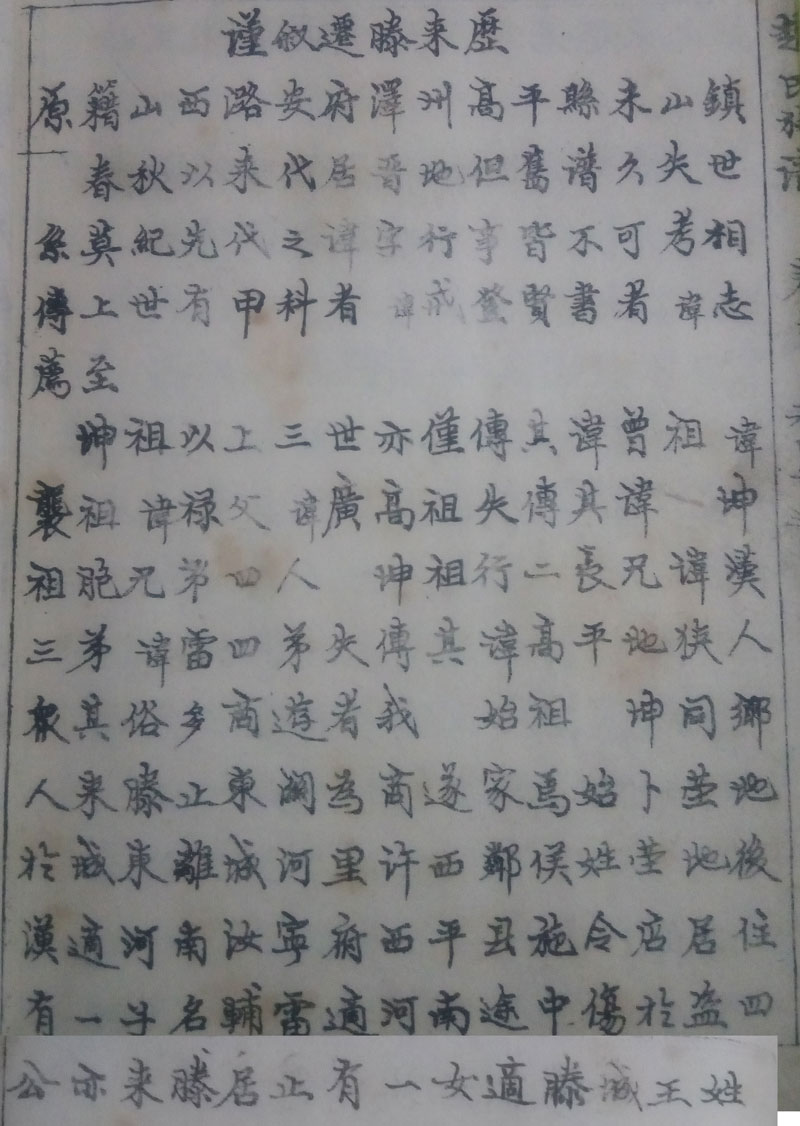 谨叙遷滕来歷
原籍山西潞安府澤州髙平縣未山鎮
春秋以来代居晋地但舊谱久失世
系莫紀先代之諱字行事皆不可考相
傳上世有甲科者諱戒登賢書者諱志
薦至
坤祖以上三世亦僅傳其諱曾祖諱
襲祖諱禄父諱廣髙祖失傳其諱坤
祖胞兄弟四人坤祖行二長兄諱漢
三弟諱雷四弟失傳其諱髙平地狭人
衆其俗多商遊者我始祖坤同鄉
人来滕止東關為商遂家焉始卜茔地
於城東離城河里许西鄰侯姓茔地後
漢適河南汝寧府西平县施令店居住
有一子名輔雷適河南途中傷於盗四
公亦来滕居止有一女適滕城王姓
趙氏族谱